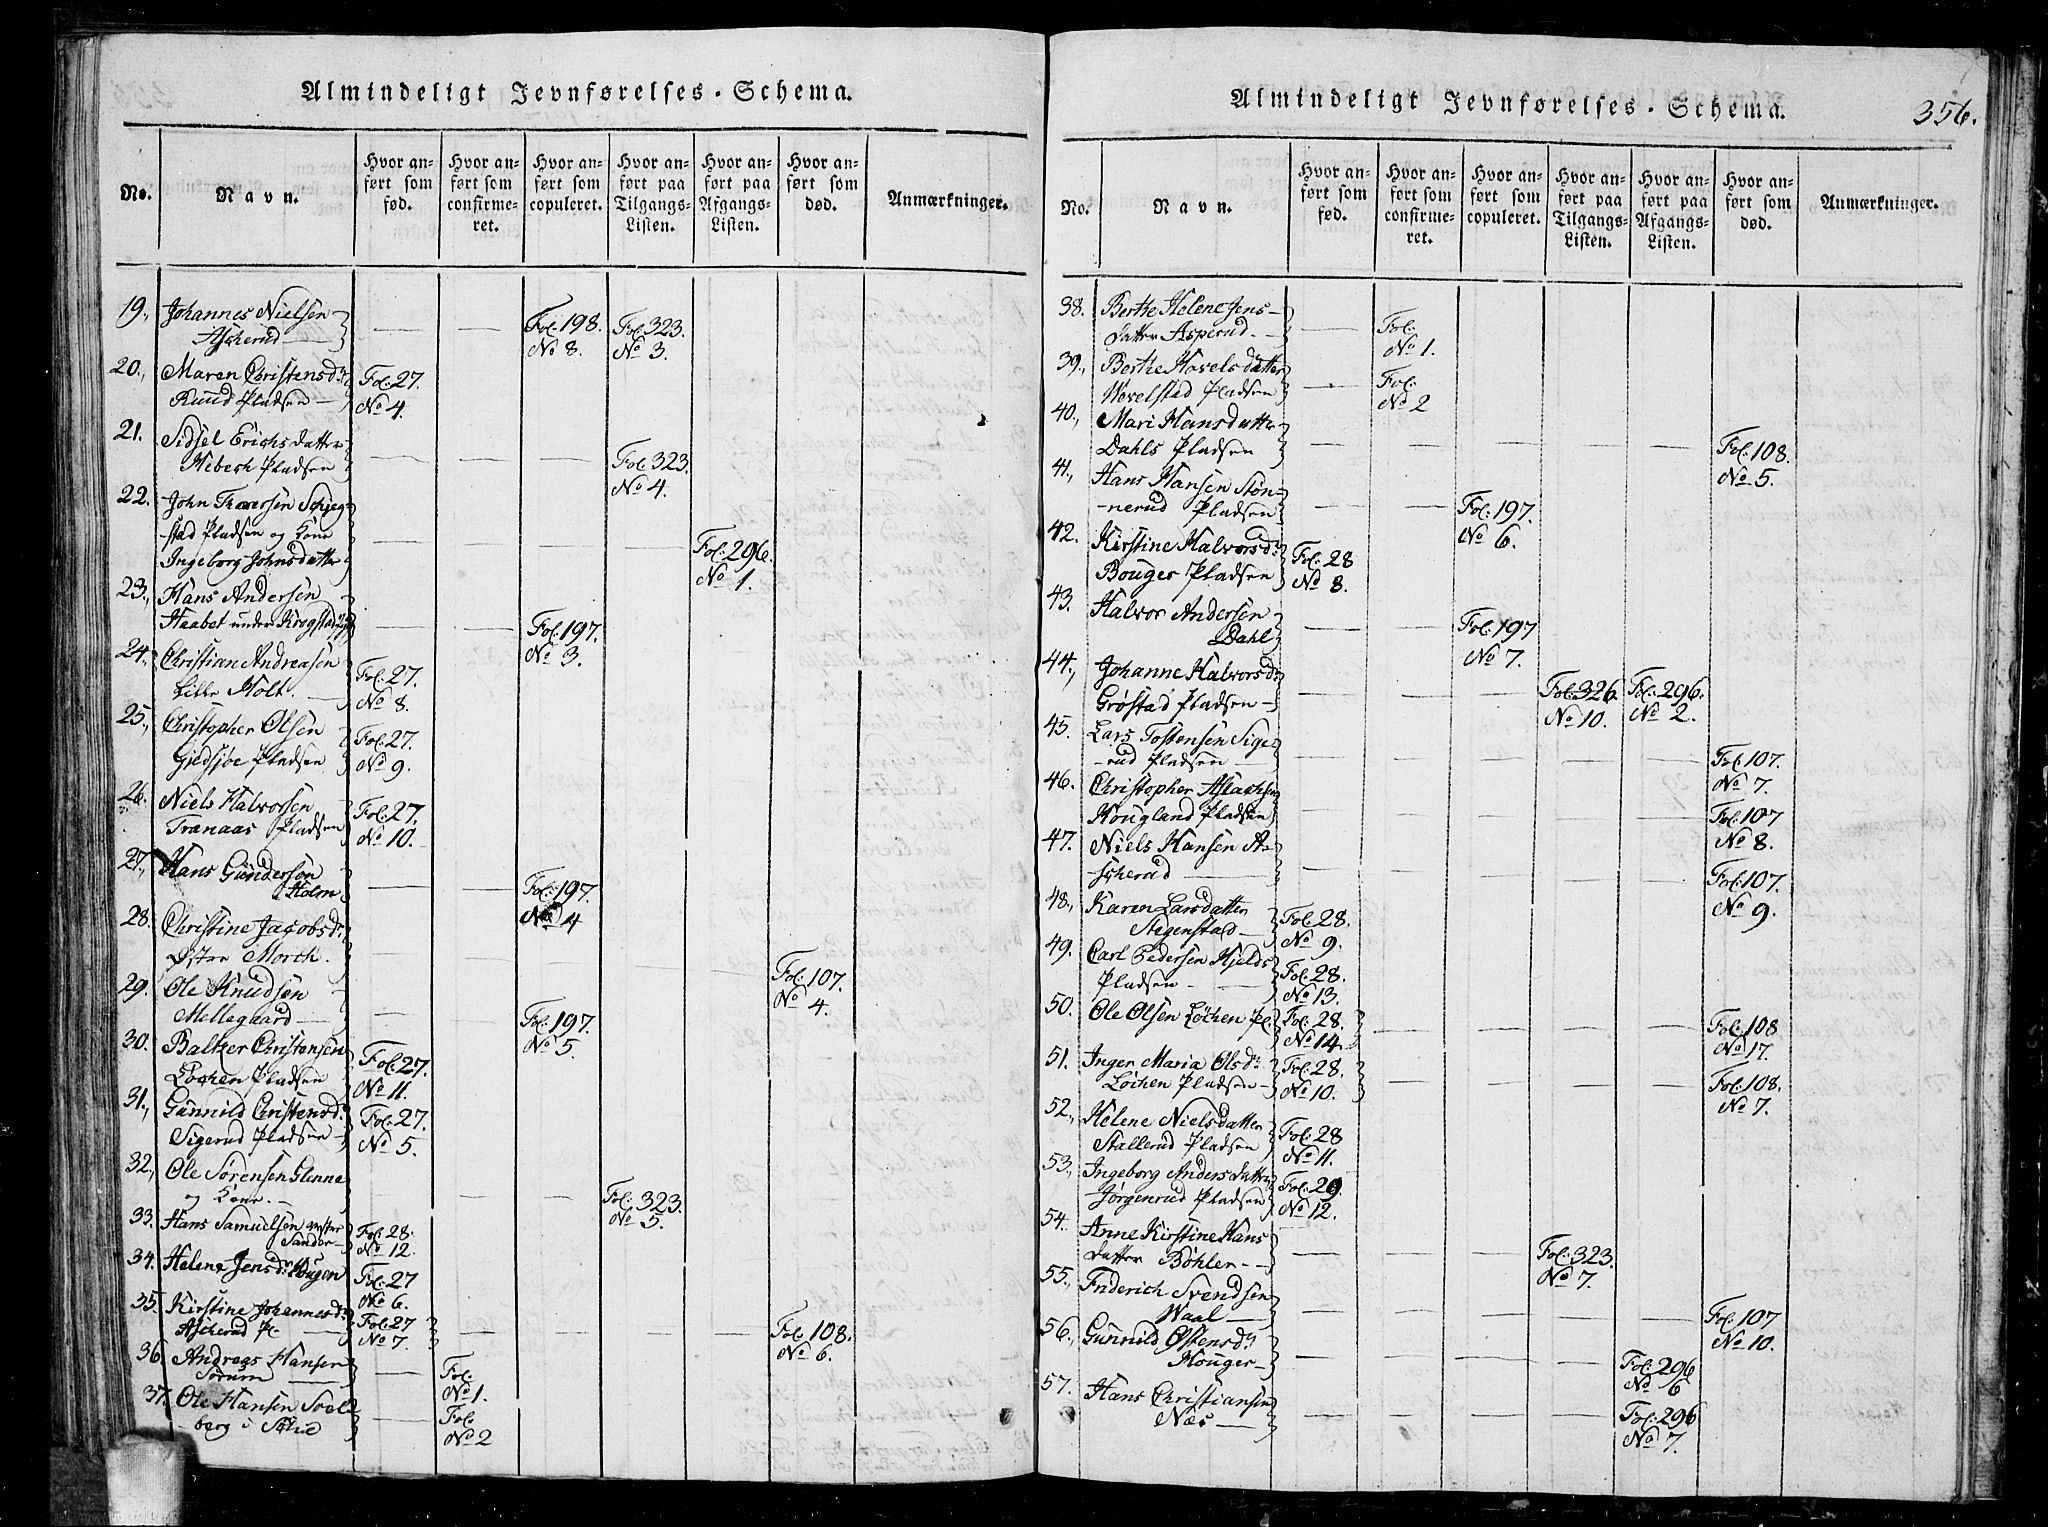 Almindeligt Jevnførelses-Schema.
No. Navn. Hvor anført som fød. Hvor anført som confirmeret. Hvor anført som copuleret. Hvor anført paa Tilgangs-Listen. Hvor anført paa Afgangs-Listen. Hvor anført som død. Anmærkninger.
19., Johannes Nielsen
Ascherud — — Fol. 198. No 8. Fol. 323. No 3.
20., Maren Christensdr
Ruud Pladsen — Fol. 27. No 4.
21. Sidsel Erichsdatter
Hebech Pladsen — — — Fol. 323. No 4.
22. John Thoersen Schieg
stad Pladsen og Kone
Ingeborg Johnsdatter — — — — Fol. 296. No 1.
23., Hans Andersen
Haabet under Krogstad — — Fol. 197. No 3.
24. Christian Andreasen
Lille Holt. — Fol. 27. No 8.
25., Christopher Olsen
Giedsjøe Pladsen Fol. 27. No 9.
26. Niels Halvorsen
Tranaas Pladsen Fol. 27. No 10.
27., Hans Gundersen
Holm — — Fol. 197. No 4
28. Christine Jacobsdr
Østre Morch. — — — — — Fol. 107. No 4.
29. Ole Knudsen
Mellegaard — — — Fol. 197. No 5.
30. Baltzer Christensen
Lochen Pladsen Fol. 27. No 11.
31., Gunnild Christensdr
Sigerud Pladsen — Fol. 27. No 5.
32., Ole Sørensen Glenne
og Kone. — — — — Fol. 323. No 5.
33. Hans Samuelsen vester
Sander — Fol. 28. No 12.
34. Helene Jensdr Hougen Fol. 27 No 6.
35. Kirstine Johannesdr
Ascherud Pl. — Fol. 27 No 7. — — — — Fol. 108. No 6.
36. Andreas Hansen
Sørum — — Fol. No 1.
37. Ole Hansen Soel
berg i — Fol. No 2
Almindeligt Jevnførelses-Schema. 356.
No. Navn. Hvor anført som fød. Hvor anført som confirmeret. Hvor anført som copuleret. Hvor anført paa Tilgangs-Listen. Hvor anført paa Afgangs-Listen. Hvor anført som død. Anmærkninger.
38. Berthe Helene Jens-
datter Asperud. — — Fol. No 1.
39., Berthe Hovelsdatter
Wevelstad Pladsen — Fol. No 2
40., Mari Hansdatter
Dahls Pladsen — — — — — Fol. 108. No 5.
41., Hans Hansen Støn-
nerud Pladsen — — Fol. 197. No 6.
42. Kirstine Halvorsdr
Bouger Pladsen Fol. 28 No 8.
43. Halvor Andersen
Dahl — — Fol. 197 No 7.
44., Johanne Halvorsdr
Grøstad Pladsen — — — — Fol. 326. No 10. Fol. 296. No 2.
45. Lars Tostensen Sige-
rud Pladsen — — — — — — Fol. 107. No 7.
46. Christopher Aslachsen
Hougland Pladsen — — — — — Fol. 107 No 8.
47. Niels Hansen A-
scherud — — — — — — Fol. 107. No 9.
48., Karen Larsdatter
Stegenstad — Fol. 28. No 9.
49. Carl Pedersen Hjelds
Pladsen — Fol. 28. No 13.
50. Ole Olsen Løchen Pl. Fol. 28. No 14. — — — — Fol. 108 No 17.
51. Inger Maria Olsdr
Løchen Pladsen — Fol. 28. No 10. — — — — Fol. 108. No 7.
52., Helene Nielsdatter
Stallerud Pladsen Fol. 28 No 11.
53., Ingeborg Andersdatter
Jørgenrud Pladsen Fol. 29. No 12.
54. Anne Kirstine Hans
datter Bøhler — — — — Fol. 323. No 7.
55., Friderich Svendsen
Waal — — — — — — Fol. 107 No 10.
56., Gunnild Østensdr
Houger — — — — — Fol. 296 No 6
57. Hans Christiansen
Næs — — — — — Fol. 296 No 7.